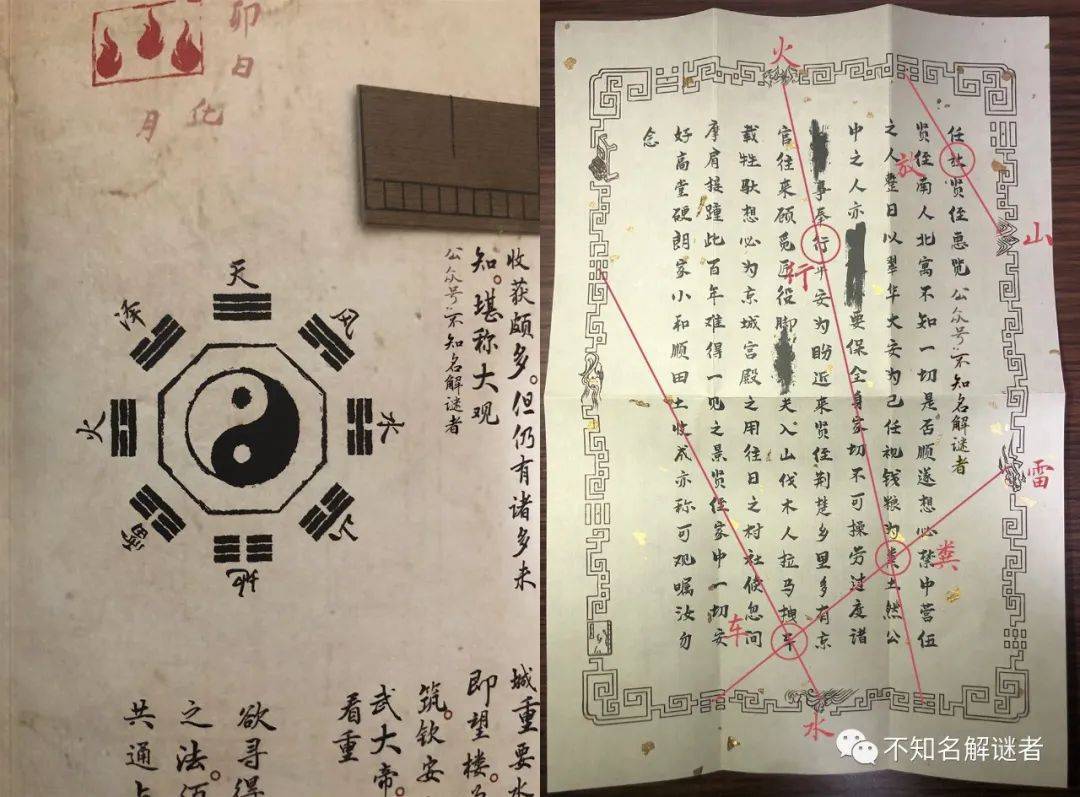 卯日
化
月
天
风
水
山
地
雷
火
泽
收获颇多。但仍有诸多未
知。堪称大观
公众号:不知名解谜者
城重要水
即望楼。
筑。钦安
武大帝。
看重
欲寻得
之法。
共通
任放贤侄惠览 公众号:不知名解谜者
贤侄南人北寓不知一切是否顺遂想必禁中营伍
之人整日以翠华大安为己任视钱粮为粪土然公
中之人亦 要保全自家切不可操劳过度诸
事奉行平安为盼近来贤侄荆楚乡里多有京
官往来顾觅匠役脚 夫入山伐木人拉马拽车
载牲驮想必为京城宫殿之用往日之村社倏忽间
摩肩接踵此百年难得一见之景贤侄家中一切安
好高堂硬朗家小和顺田土收成亦称可观嘱汝勿
念
火
放
山
行
雷
粪
车
水
不知名解谜者